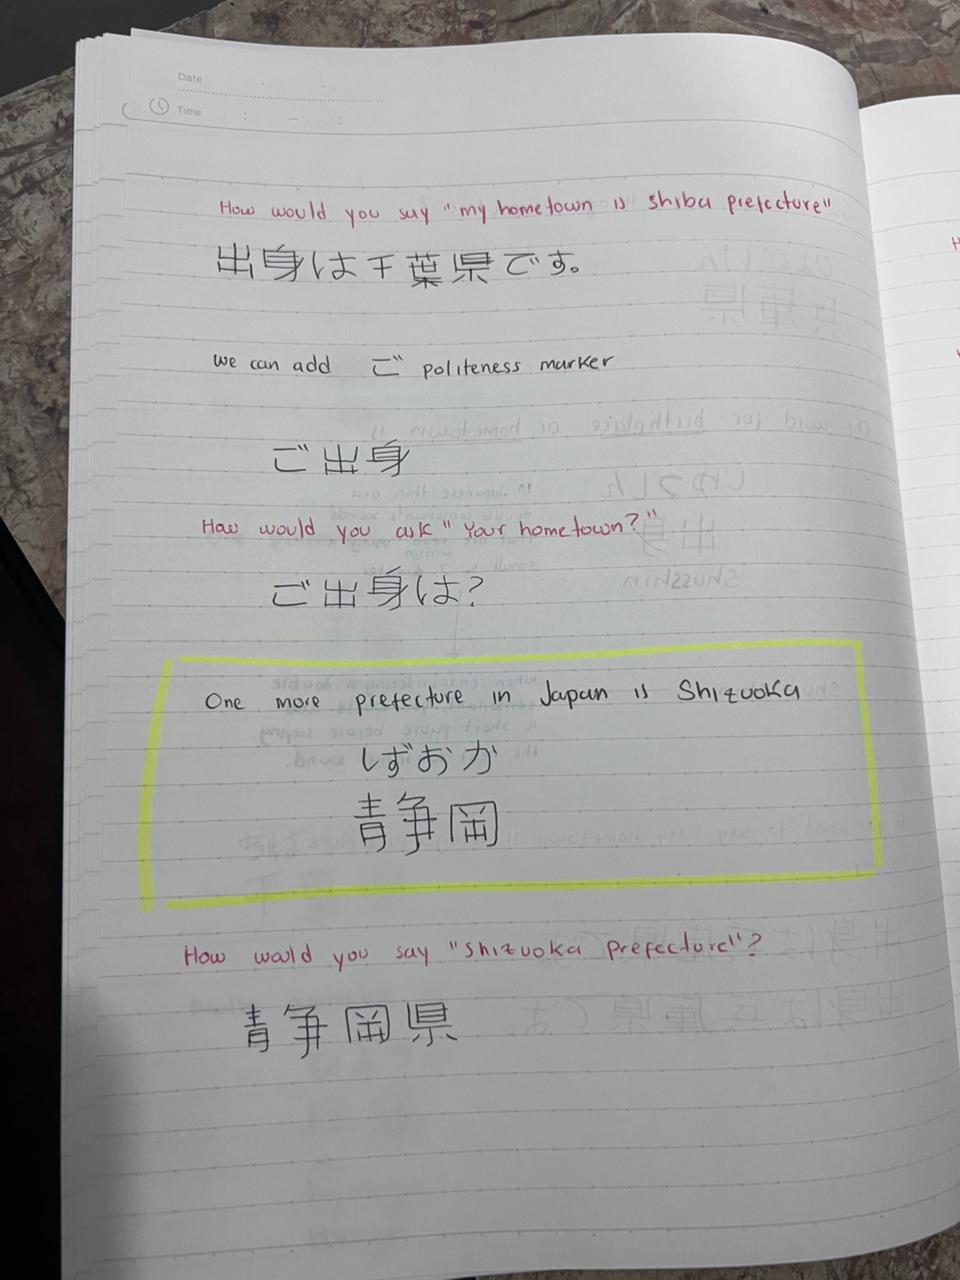 Date
Time : - :
How would you say "my hometown is shiba prefecture"
出身は千葉県です。
we can add ご politeness marker
ご出身
How would you ask "Your hometown?"
ご出身は?
One more prefecture in Japan is Shizuoka
しずおか
静岡
How would you say "Shizuoka prefecture"?
静岡県